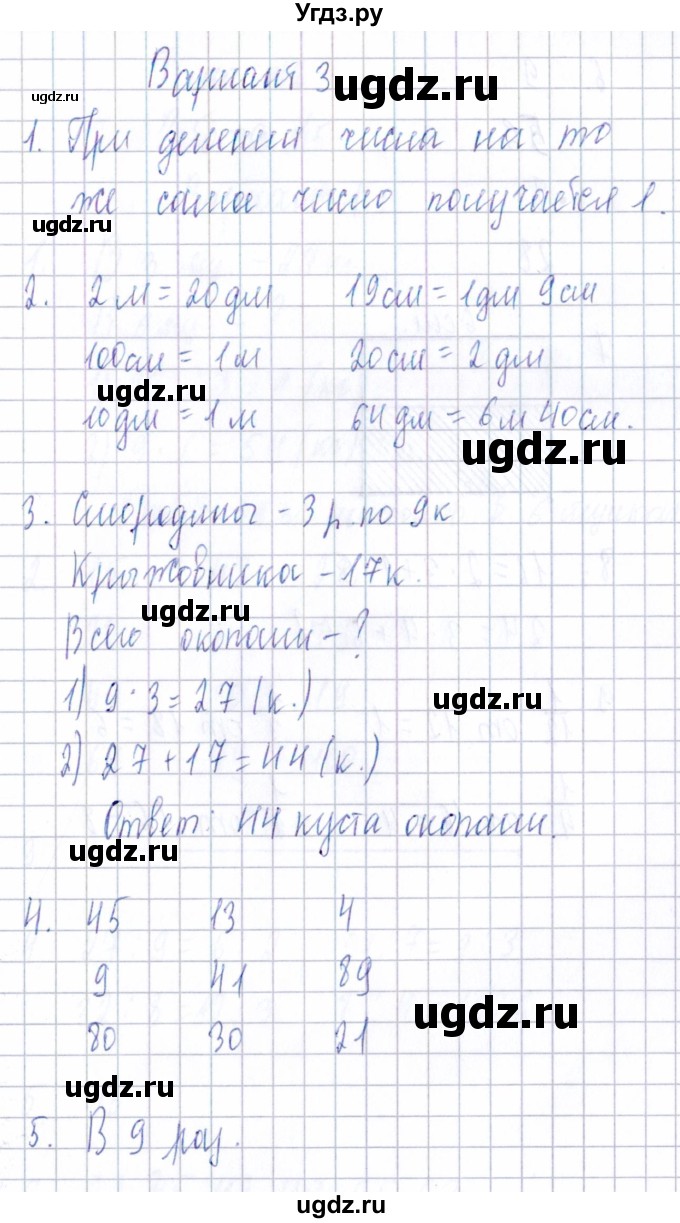 Угдз.ру
Вариант 3
ugdz.ru
ugdz.ru
1. При делении числа на то
же самое число получается 1.
ugdz.ru
2. 2 м = 20 дм 19 см = 1 дм 9 см
100 см = 1 м 20 см = 2 дм
ugdz.ru
10 дм = 1 м 64 дм = 6 м 40 см.
ugdz.ru
3. Смородины - 3 р. по 9 к
Крыжовника - 17 к.
ugdz.ru
Всего окопали - ?
1) 9 · 3 = 27 (к.)
ugdz.ru
2) 27 + 17 = 44 (к.)
Ответ: 44 куста окопали.
ugdz.ru
4. 45 13 4
9 41 89
ugdz.ru
80 30 21
ugdz.ru
5. В 9 раз.
ugdz.ru